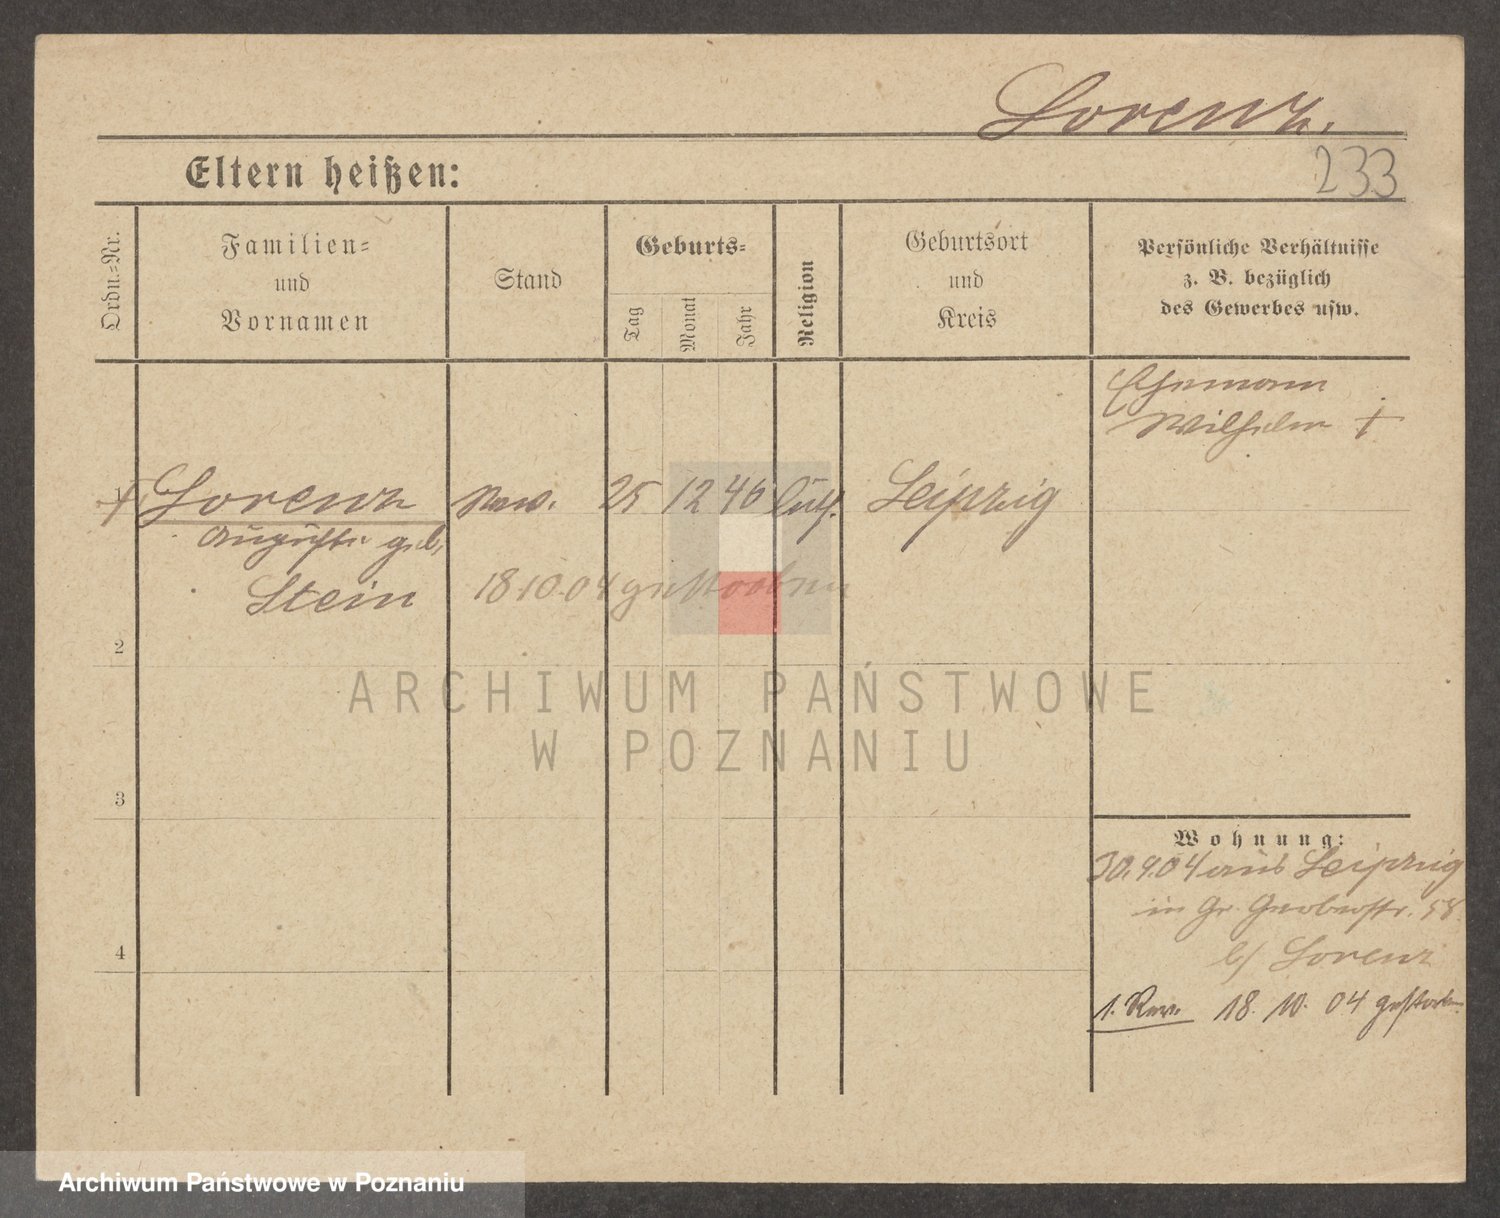 Lorenz.
233
Eltern heißen:
Ordn.-Nr.
Familien-
und
Vornamen
Stand
Geburts-
Tag
Monat
Jahr
Religion
Geburtsort
und
Kreis
Persönliche Verhältnisse
z. B. bezüglich
des Gewerbes usw.
Ehemann
Wilhelm †
† Lorenz
25 12 46 luth. Leipzig
Auguste geb.
Stein
18.10.04 gestorben
2
3
4
ARCHIWUM PAŃSTWOWE
W POZNANIU
Wohnung:
30.9.04 aus Leipzig
in Gr. Gerberstr. 58.
b/ Lorenz
1. Rev. 18. 10. 04 gestorben
Archiwum Państwowe w Poznaniu